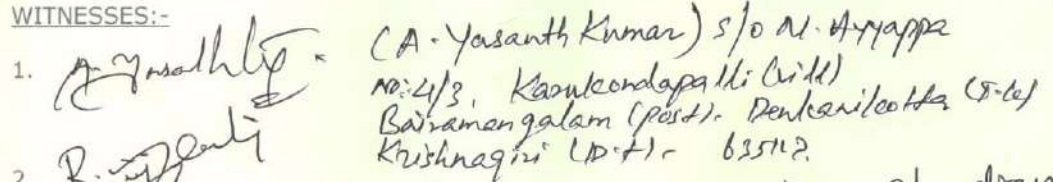 WITNESSES:-
1. A. Yasanth (A. Yasanth Kumar) s/o N. Ayyappa
No: 4/3, Karukondapalli (vill)
Bairamangalam (post). Denkanikotta (T-k)
Krishnagiri (D.t) - 635113.
2. R.